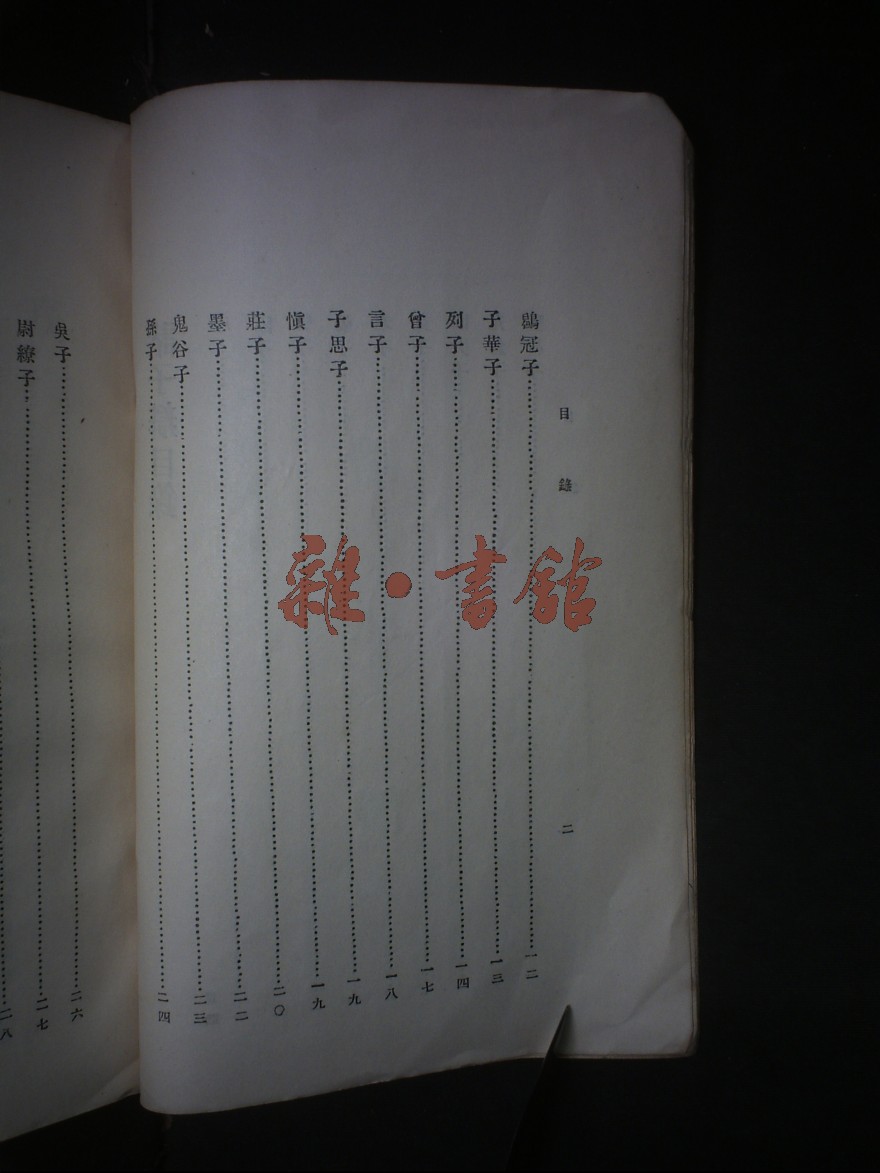 目錄 二
鶡冠子 一二
子華子 一三
列子 一四
曾子 一七
言子 一八
子思子 一九
愼子 一九
莊子 二〇
墨子 二二
鬼谷子 二三
孫子 二四
吳子 二六
尉繚子 二七
二八
雜·書館